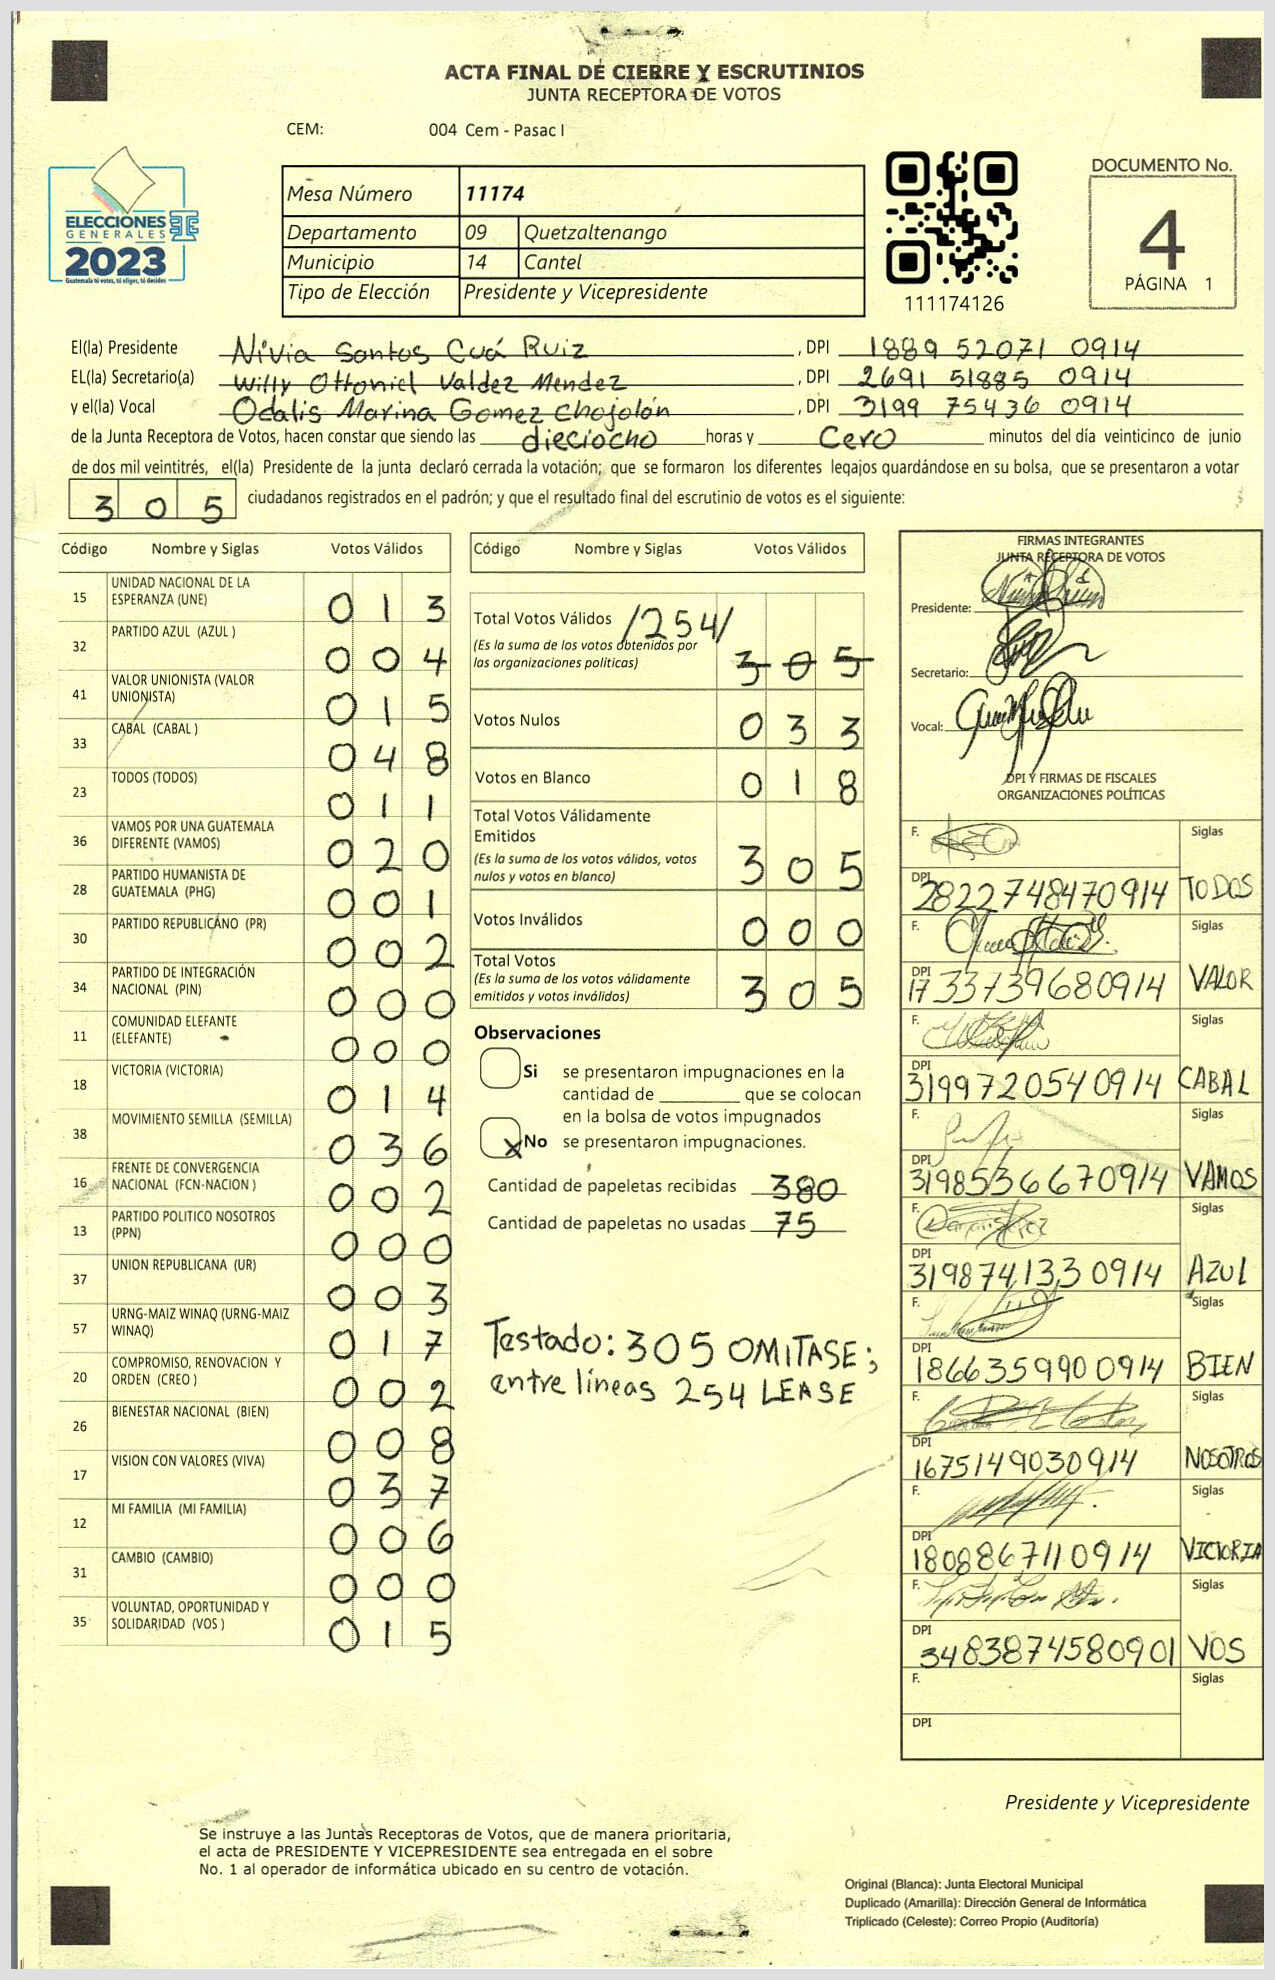 ACTA FINAL DE CIERRE Y ESCRUTINIOS
JUNTA RECEPTORA DE VOTOS
CEM: 004 Cem - Pasac I
ELECCIONES
GENERALES
2023
Guatemala tú votes, tú eliges, tú decides
Mesa Número 11174
Departamento 09 Quetzaltenango
Municipio 14 Cantel
Tipo de Elección Presidente y Vicepresidente
111174126
DOCUMENTO No.
4
PÁGINA 1
El(la) Presidente Nivia Santos Cuá Ruiz, DPI 1889 52071 0914
EL(la) Secretario(a) Willy Ottoniel Valdez Mendez, DPI 2691 51885 0914
y el(la) Vocal Odalis Marina Gomez Chojolón, DPI 3199 75436 0914
de la Junta Receptora de Votos, hacen constar que siendo las dieciocho horas y Cero minutos del día veinticinco de junio
de dos mil veintitrés, el(la) Presidente de la junta declaró cerrada la votación; que se formaron los diferentes legajos guardándose en su bolsa, que se presentaron a votar
305 ciudadanos registrados en el padrón; y que el resultado final del escrutinio de votos es el siguiente:
Código Nombre y Siglas Votos Válidos
15 UNIDAD NACIONAL DE LA ESPERANZA (UNE) 013
32 PARTIDO AZUL (AZUL ) 004
41 VALOR UNIONISTA (VALOR UNIONISTA) 015
33 CABAL (CABAL ) 048
23 TODOS (TODOS) 011
36 VAMOS POR UNA GUATEMALA DIFERENTE (VAMOS) 020
28 PARTIDO HUMANISTA DE GUATEMALA (PHG) 001
30 PARTIDO REPUBLICANO (PR) 002
34 PARTIDO DE INTEGRACIÓN NACIONAL (PIN) 000
11 COMUNIDAD ELEFANTE (ELEFANTE) 000
18 VICTORIA (VICTORIA) 014
38 MOVIMIENTO SEMILLA (SEMILLA) 036
16 FRENTE DE CONVERGENCIA NACIONAL (FCN-NACION ) 002
13 PARTIDO POLITICO NOSOTROS (PPN) 000
37 UNION REPUBLICANA (UR) 003
57 URNG-MAIZ WINAQ (URNG-MAIZ WINAQ) 017
20 COMPROMISO, RENOVACION Y ORDEN (CREO ) 002
26 BIENESTAR NACIONAL (BIEN) 008
17 VISION CON VALORES (VIVA) 037
12 MI FAMILIA (MI FAMILIA) 006
31 CAMBIO (CAMBIO) 000
35 VOLUNTAD, OPORTUNIDAD Y SOLIDARIDAD (VOS ) 015
Código Nombre y Siglas Votos Válidos
Total Votos Válidos /254/
(Es la suma de los votos obtenidos por
las organizaciones politicas) 305
Votos Nulos 033
Votos en Blanco 018
Total Votos Válidamente
Emitidos
(Es la suma de los votos válidos, votos
nulos y votos en blanco) 305
Votos Inválidos 000
Total Votos
(Es la suma de los votos válidamente
emitidos y votos inválidos) 305
Observaciones
Si se presentaron impugnaciones en la
cantidad de ________ que se colocan
en la bolsa de votos impugnados
x No se presentaron impugnaciones.
Cantidad de papeletas recibidas 380
Cantidad de papeletas no usadas 75
Testado: 305 OMITASE;
entre líneas 254 LEASE
FIRMAS INTEGRANTES
JUNTA RECEPTORA DE VOTOS
Presidente:
Secretario:
Vocal:
DPI Y FIRMAS DE FISCALES
ORGANIZACIONES POLÍTICAS
F. Siglas
DPI 2822748470914 TODOS
F. Siglas
DPI 1733739680914 VALOR
F. Siglas
DPI 3199720540914 CABAL
F. Siglas
DPI 3198536670914 VAMOS
F. Siglas
DPI 3198741330914 AZUL
F. Siglas
DPI 1866359900914 BIEN
F. Siglas
DPI 1675149030914 NOSOTROS
F. Siglas
DPI 1808867110914 VICTORIA
F. Siglas
DPI 3483874580901 VOS
F. Siglas
DPI
Presidente y Vicepresidente
Se instruye a las Juntas Receptoras de Votos, que de manera prioritaria,
el acta de PRESIDENTE Y VICEPRESIDENTE sea entregada en el sobre
No. 1 al operador de informática ubicado en su centro de votación.
Original (Blanca): Junta Electoral Municipal
Duplicado (Amarilla): Dirección General de Informática
Triplicado (Celeste): Correo Propio (Auditoría)